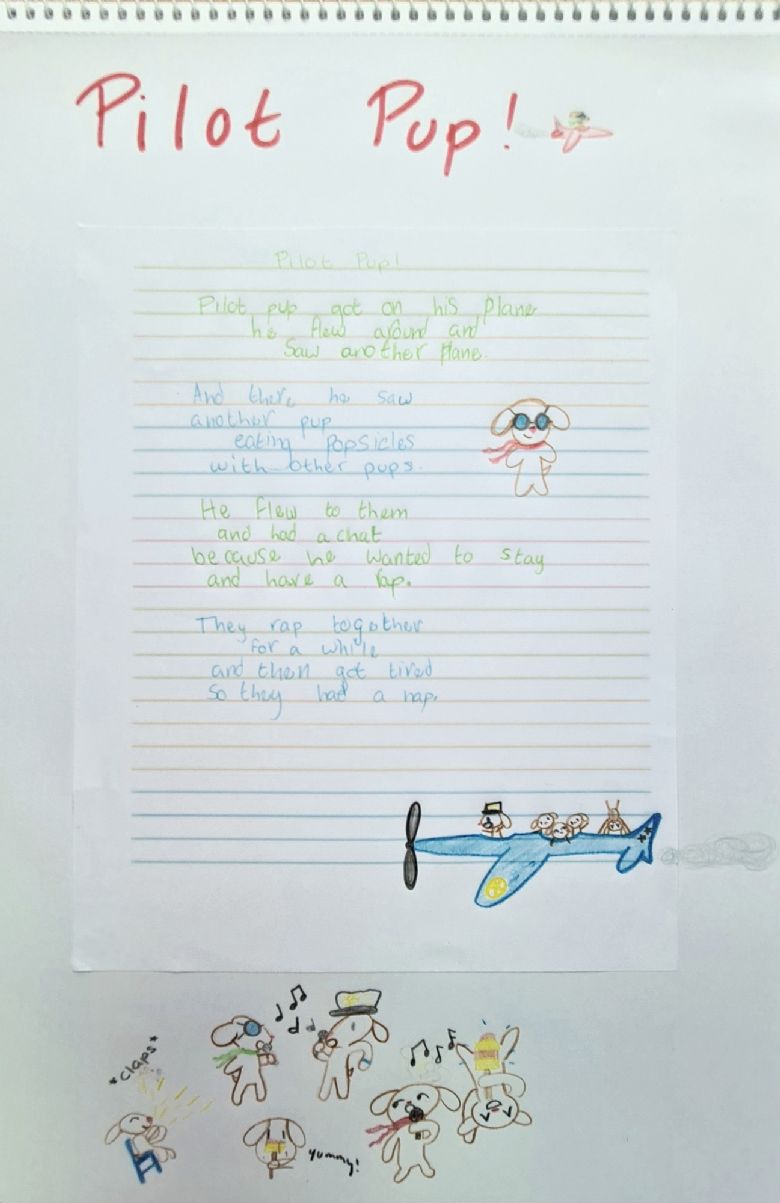 Pilot Pup!
Pilot Pup!
Pilot pup got on his plane
he flew around and
Saw another plane.
And there he saw
another pup
eating popsicles
with other pups.
He flew to them
and had a chat
because he wanted to stay
and have a rap.
They rap together
For a while
and then got tired
So they had a nap.
*claps*
Yummy!